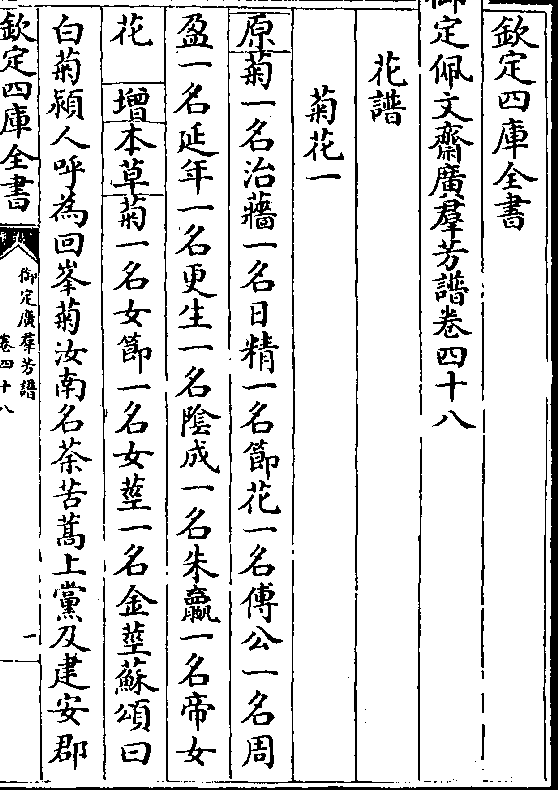 欽定四庫全書
御定佩文齋廣羣芳譜卷四十八
花譜
菊花一
原菊一名治蘠一名日精一名節花一名傅公一名周
盈一名延年一名更生一名陰成一名朱羸一名帝女
花 增本草菊一名女節一名女莖一名金莖蘇頌曰
白菊潁人呼為回峯菊汝南名荼苦蒿上黨及建安郡
欽定四庫全書
御定廣羣芳譜
卷四十八
一